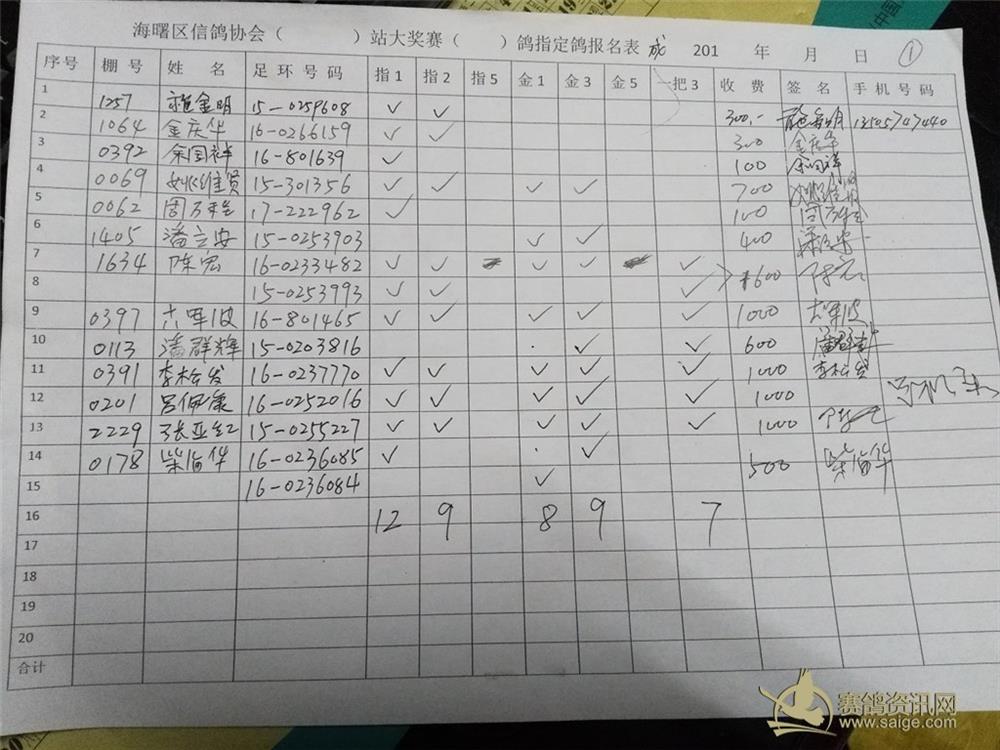 海曙区信鸽协会（ ）站大奖赛（ ）鸽指定鸽报名表 成 201 年 月 日 ①
序号 棚号 姓 名 足环号码 指1 指2 指5 金1 金3 金5 一把3 收费 签名 手机号码
1 1257 金明 15-0259608 ✓ ✓ 300,- 13505747440
2 1064 金庆华 16-0266159 ✓ ✓ 300 金庆华
3 0392 余国祥 16-801639 ✓ 100 余国祥
4 0069 姚维贤 15-301356 ✓ ✓ ✓ ✓ 700
5 0062 周 17-222962 ✓ 100 周
6 1405 潘立安 15-0253903 ✓ ✓ 400
7 1634 陈宏 16-0233482 ✓ ✓ ✓ ✓ ✓ 1600 陈宏
8 15-0253993 ✓ ✓ ✓
9 0397 六军波 16-801465 ✓ ✓ ✓ ✓ ✓ 1000
10 0113 潘群辉 15-0203816 · ✓ ✓ 600 潘群辉
11 0391 李松发 16-0237770 ✓ ✓ ✓ ✓ ✓ 1000 李松发
12 0201 吕佩康 16-0252016 ✓ ✓ ✓ ✓ ✓ 1000
13 2229 张亚红 15-0255227 ✓ ✓ ✓ ✓ ✓ 1000
14 0178 柴海华 16-0236085 ✓ · ✓ 500 柴海华
15 16-0236084 ✓
16 12 9 8 9 7
17
18
19
20
合计
赛鸽资讯网
www.saige.com